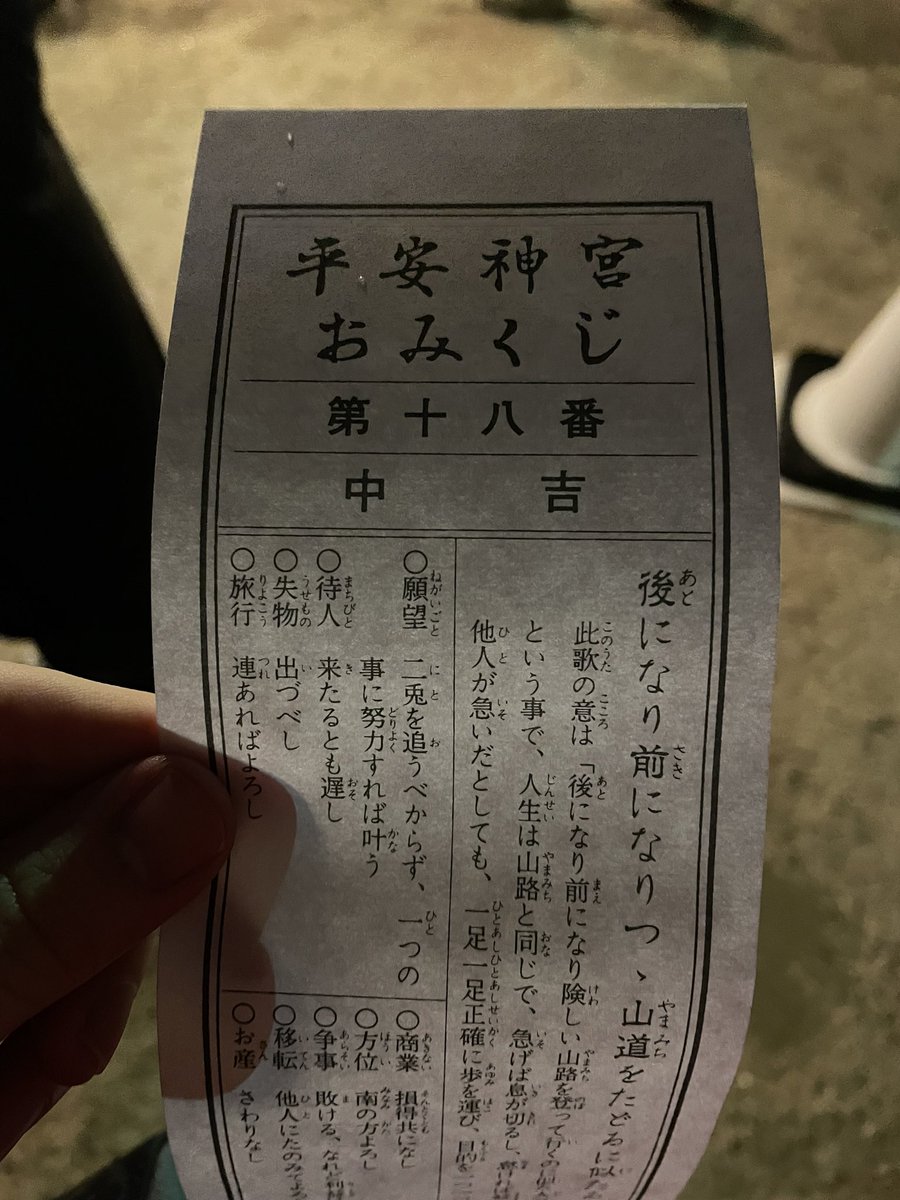 平安神宮
おみくじ
第十八番
中吉
後になり前になりつゝ山道をたどるに似た
此歌の意は「後になり前になり険しい山路を登って行くの
という事で、人生は山路と同じで、急げば息が切るし、
他人が急いだとしても、一足一足正確に歩を運び、目的を
○願望 二兎を追うべからず、一つの
事に努力すれば叶う
○待人 来たるとも遅し
○失物 出づべし
○旅行 連あればよろし
○商業 損得共になし
○方位 南の方よろし
○争事 敗ける、なれど
○移転 他人にたのみてよろ
○お産 さわりなし